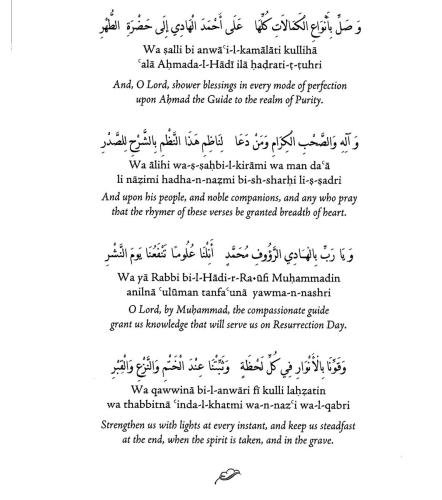 وَ صَلِّ بِأَنْوَاعِ الْكَمَالَاتِ كُلِّهَا عَلَى أَحْمَدَ الْهَادِي إِلَى حَضْرَةِ الطُّهْرِ
Wa ṣalli bi anwāʿi-l-kamālāti kullihā
ʿalā Aḥmada-l-Hādī ilā ḥaḍrati-ṭ-ṭuhri
And, O Lord, shower blessings in every mode of perfection
upon Aḥmad the Guide to the realm of Purity.
وَ آلِهِ وَالصَّحْبِ الْكِرَامِ وَمَنْ دَعَا لِنَاظِمِ هَذَا النَّظْمِ بِالشَّرْحِ لِلصَّدْرِ
Wa ālihi wa-ṣ-ṣaḥbi-l-kirāmi wa man daʿā
li nāẓimi hadha-n-naẓmi bi-sh-sharḥi li-ṣ-ṣadri
And upon his people, and noble companions, and any who pray
that the rhymer of these verses be granted breadth of heart.
وَ يَا رَبِّ بِالْهَادِي الرَّؤُوفِ مُحَمَّدٍ أَنِلْنَا عُلُومًا تَنْفَعُنَا يَوْمَ النَّشْرِ
Wa yā Rabbi bi-l-Hādi-r-Ra•ūfi Muḥammadin
anilnā ʿulūman tanfaʿunā yawma-n-nashri
O Lord, by Muḥammad, the compassionate guide
grant us knowledge that will serve us on Resurrection Day.
وَ قَوِّنَا بِالْأَنْوَارِ فِي كُلِّ لَحْظَةٍ وَثَبِّتْنَا عِنْدَ الْخَتْمِ وَالنَّزْعِ وَالْقَبْرِ
Wa qawwinā bi-l-anwāri fī kulli laḥẓatin
wa thabbitnā ʿinda-l-khatmi wa-n-nazʿi wa-l-qabri
Strengthen us with lights at every instant, and keep us steadfast
at the end, when the spirit is taken, and in the grave.